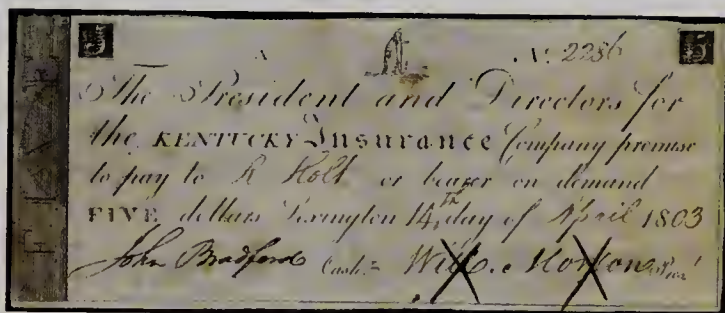 5 A No. 2286 5
FIVE
The President and Directors for
the KENTUCKY Insurance Company promise
to pay to R Holt or bearer on demand
FIVE dollars Lexington 14th day of April 1803
John Bradford Cash.= Will. Morton Pres.t